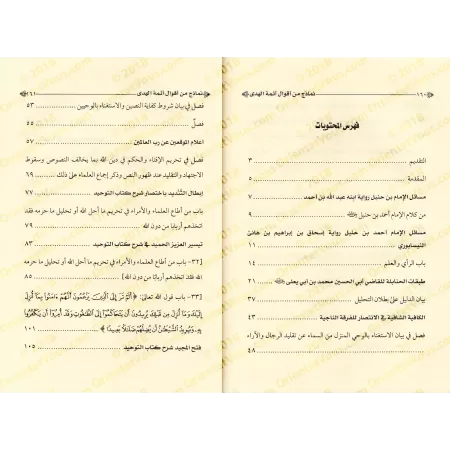 ١٦٠
نماذج من أقوال أئمة الهدى
فهرس المحتويات
التقديم ٣
المقدمة ٥
مسائل الإمام بن حنبل رواية ابنه عبد الله بن أحمد ٧
من كلام الإمام أحمد بن حنبل ٩
مسائل الإمام أحمد بن حنبل رواية إسحاق بن إبراهيم بن هانئ
النيسابوري ١١
باب الرأي والعلم ١٤
طبقات الحنابلة للقاضي أبي الحسين محمد بن أبي يعلى ٢١
بيان الدليل على بطلان التحليل ٣٧
الكافية الشافية في الانتصار للفرقة الناجية ٤٣
فصل في بيان الاستغناء بالوحي المنزل من السماء عن تقليد الرجال والآراء
٤٨
نماذج من أقوال أئمة الهدى
١٦١
فصل في بيان شروط كفاية النصين والاستغناء بالوحيين ٥٣
فصل ٥٥
اعلام الموقعين عن رب العالمين ٥٧
فصل في تحريم الإفتاء والحكم في دين الله بما يخالف النصوص وسقوط
الاجتهاد والتقليد عند ظهور النص وذكر إجماع العلماء على ذلك ٦٩
إبطال التنديد باختصار شرح كتاب التوحيد ٧٧
باب من أطاع العلماء والأمراء في تحريم ما أحل الله أو تحليل ما حرمه فقد
اتخذهم أربابا من دون الله ٧٩
تيسير العزيز الحميد في شرح كتاب التوحيد ٨٣
[٣٢- باب من أطاع العلماء والأمراء في تحريم ما أحل الله أو تحليل ما حرم
الله فقد اتخذهم أربابا من دون الله]
[٣٣- باب قول الله تعالى: ﴿أَلَمْ تَرَ إِلَى الَّذِينَ يَزْعُمُونَ أَنَّهُمْ آمَنُوا بِمَا أُنزِلَ
إِلَيْكَ وَمَا أُنزِلَ مِن قَبْلِكَ يُرِيدُونَ أَن يَتَحَاكَمُوا إِلَى الطَّاغُوتِ وَقَدْ أُمِرُوا أَن يَكْفُرُوا
بِهِ وَيُرِيدُ الشَّيْطَانُ أَن يُضِلَّهُمْ ضَلَالًا بَعِيدًا﴾ ١٠١
فتح المجيد شرح كتاب التوحيد ١٠٥